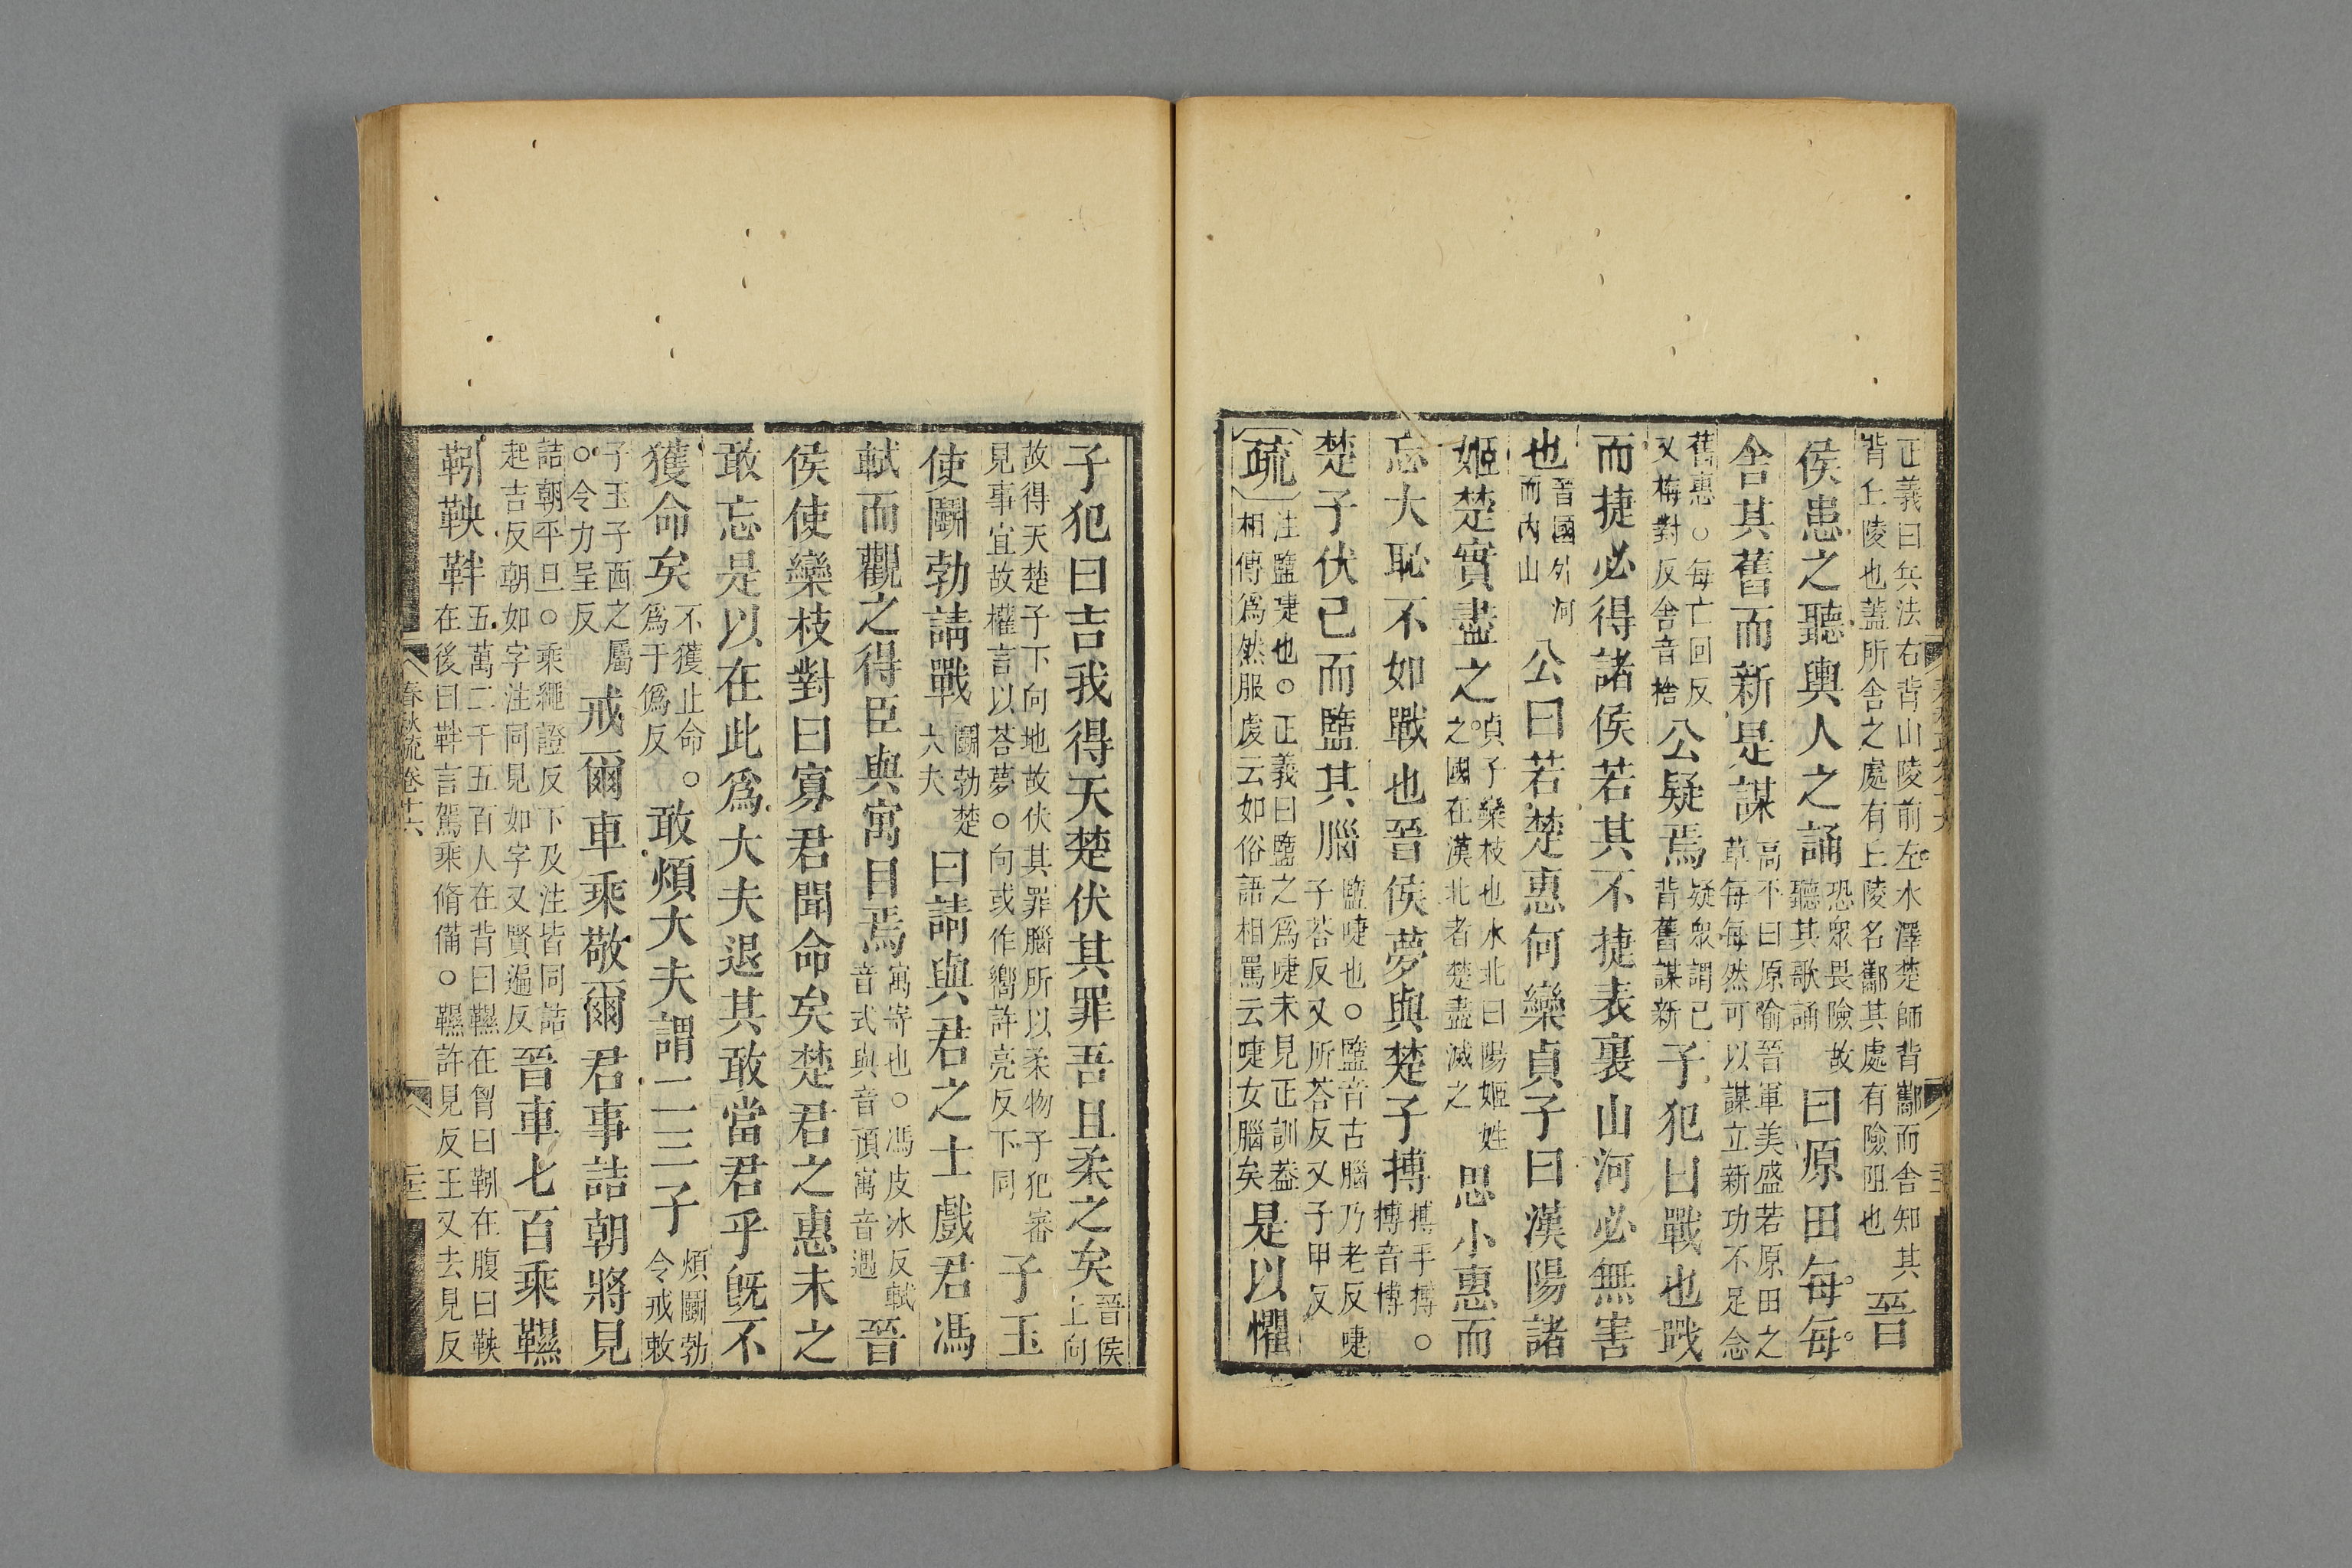 正義曰兵法右背山陵前左水澤楚師背酅而舍知其
背丘陵也蓋所舍之處有丘陵名酅其處有險阻也
晉
侯患之聽輿人之誦
恐眾畏險故
聽其歌誦
曰原田每每
舍其舊而新是謀
高平曰原喻晉軍美盛若原田之
草每每然可以謀立新功不足念
舊惠○每亡回反
又梅對反舍音捨
公疑焉
疑眾謂已
背舊謀新
子犯曰戰也戰
而捷必得諸侯若其不捷表裏山河必無害
也
晉國外河
而內山
公曰若楚惠何欒貞子曰漢陽諸
姬楚實盡之
貞子欒枝也水北曰陽姬姓
之國在漢北者楚盡滅之
思小惠而
忘大恥不如戰也晉侯夢與楚子搏
搏手搏○
搏音博
楚子伏己而盬其腦
盬啑也○盬音古腦乃老反啑
子荅反又所荅反又子甲反
疏
注盬啑也○正義曰盬之爲啑未見正訓蓋
相傳爲然服虔云如俗語相罵云啑女腦矣
是以懼
子犯曰吉我得天楚伏其罪吾且柔之矣
晉侯
上向
故得天楚子下向地故伏其罪腦所以柔物子犯審
見事宜故權言以荅夢○向或作嚮許亮反下同
子玉
使鬭勃請戰
鬭勃楚
大夫
曰請與君之士戲君馮
軾而觀之得臣與寓目焉
寓寄也○馮皮冰反軾
音式與音預寓音遇
晉
侯使欒枝對曰寡君聞命矣楚君之惠未之
敢忘是以在此爲大夫退其敢當君乎旣不
獲命矣
不獲止命○
爲于僞反
敢煩大夫謂二三子
煩鬭勃
令戒敕
子玉子西之屬
○令力呈反
戒爾車乘敬爾君事詰朝將見
詰朝平旦○乘繩證反下及注皆同詰
起吉反朝如字注同見如字又賢遍反
晉車七百乘韅
靷鞅靽
五萬二千五百人在背曰韅在胷曰靷在腹曰鞅
在後曰靽言駕乘脩備○韅許見反王又去見反
春秋疏卷十六